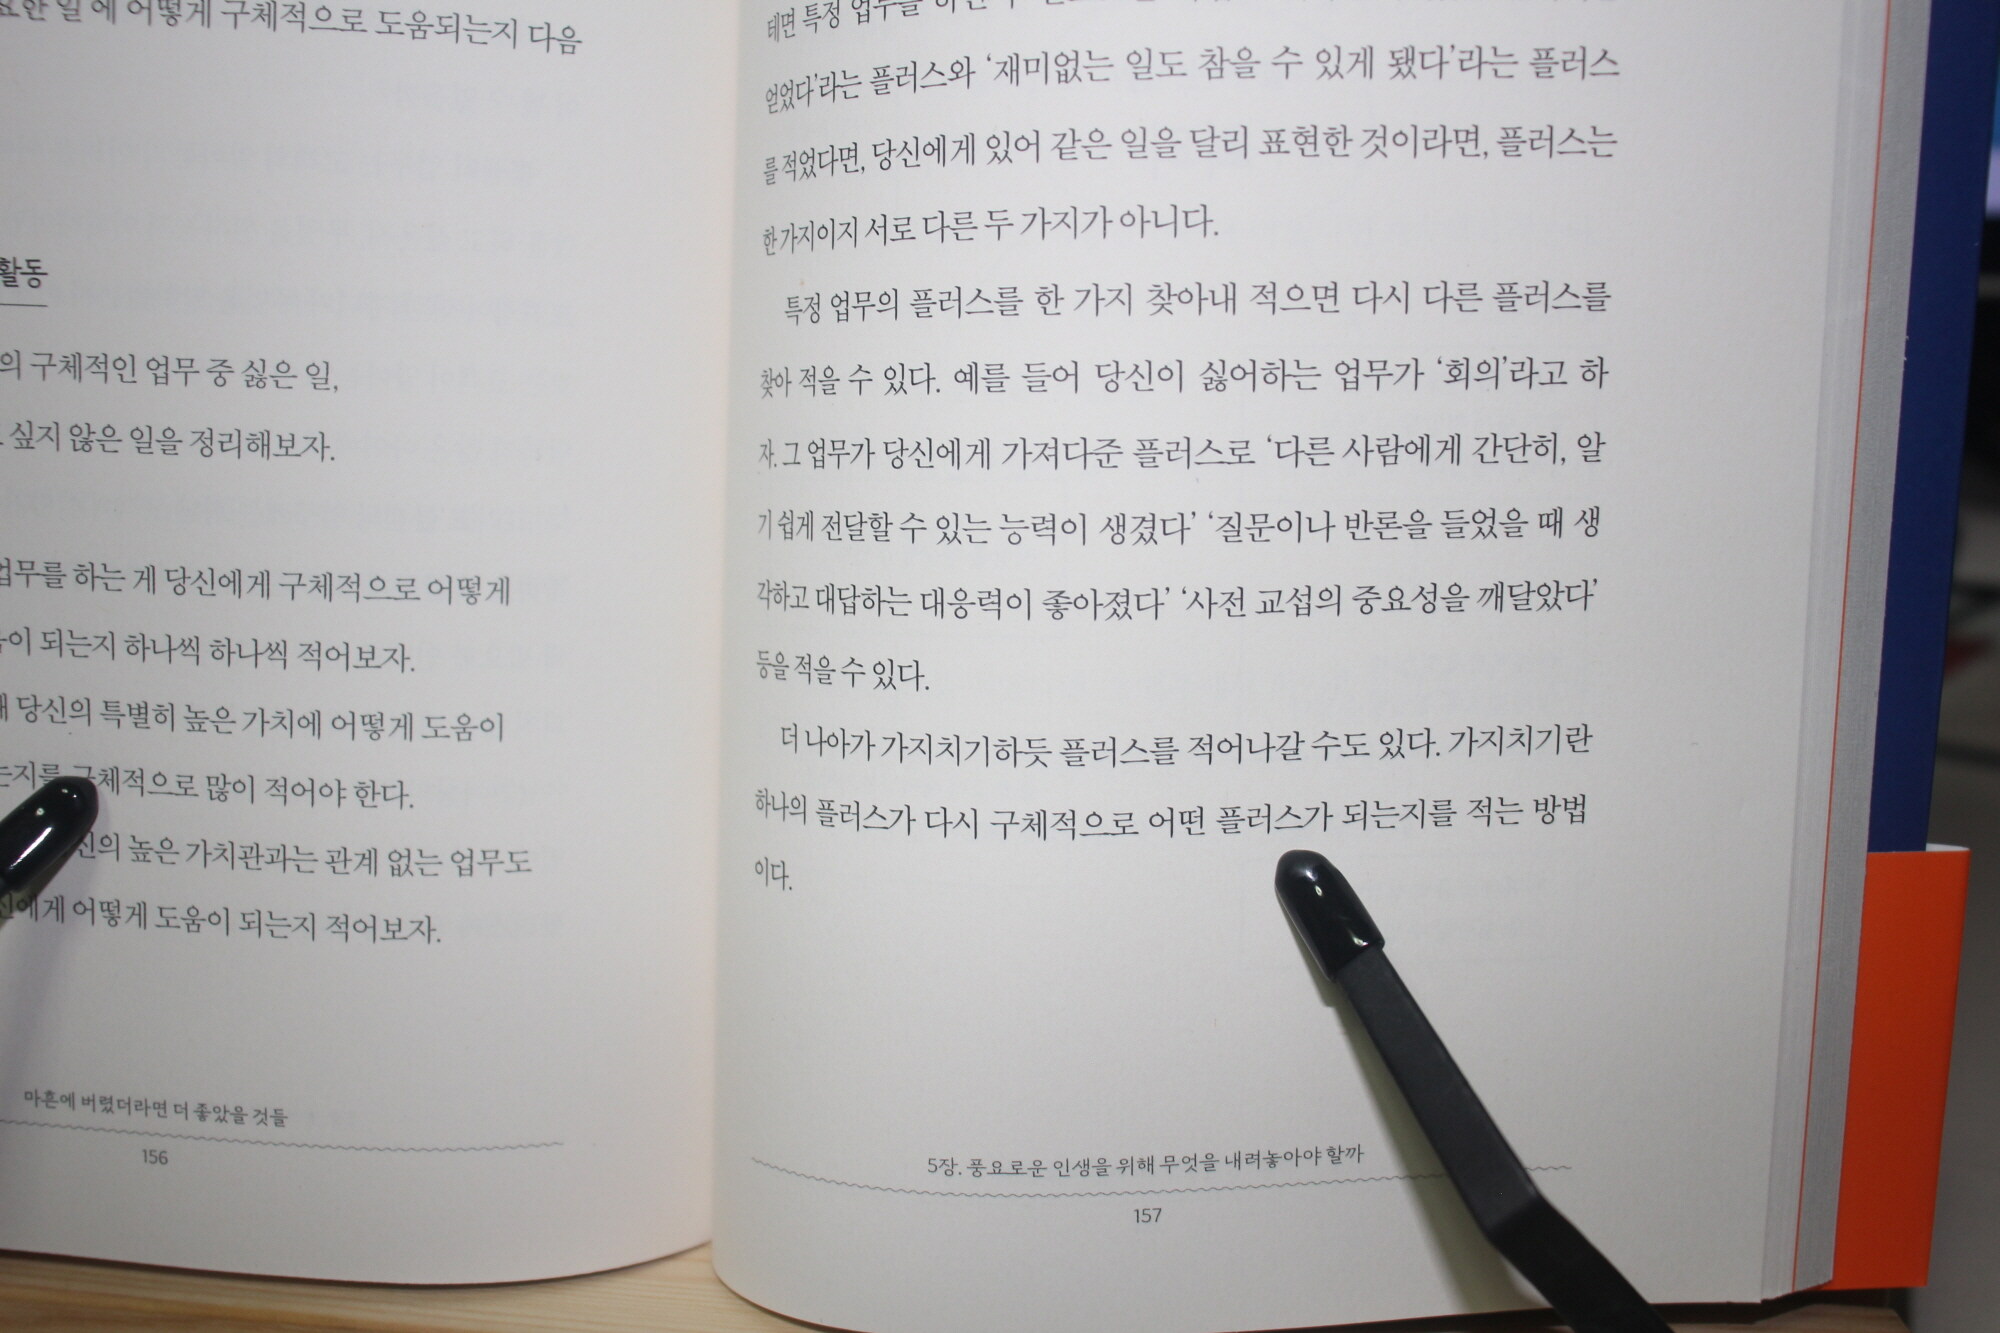 일에 어떻게 구체적으로 도움되는지 다음
활동
의 구체적인 업무 중 싫은 일,
싶지 않은 일을 정리해보자.
업무를 하는 게 당신에게 구체적으로 어떻게
이 되는지 하나씩 하나씩 적어보자.
당신의 특별히 높은 가치에 어떻게 도움이
는지를 구체적으로 많이 적어야 한다.
신의 높은 가치관과는 관계 없는 업무도
신에게 어떻게 도움이 되는지 적어보자.
마흔에 버렸더라면 더 좋았을 것들
156
테면 특정 업무를
얻었다’라는 플러스와 ‘재미없는 일도 참을 수 있게 됐다’라는 플러스
를 적었다면, 당신에게 있어 같은 일을 달리 표현한 것이라면, 플러스는
한 가지이지 서로 다른 두 가지가 아니다.
특정 업무의 플러스를 한 가지 찾아내 적으면 다시 다른 플러스를
찾아 적을 수 있다. 예를 들어 당신이 싫어하는 업무가 ‘회의’라고 하
자. 그 업무가 당신에게 가져다준 플러스로 ‘다른 사람에게 간단히, 알
기 쉽게 전달할 수 있는 능력이 생겼다’ ‘질문이나 반론을 들었을 때 생
각하고 대답하는 대응력이 좋아졌다’ ‘사전 교섭의 중요성을 깨달았다’
등을 적을 수 있다.
더 나아가 가지치기하듯 플러스를 적어나갈 수도 있다. 가지치기란
하나의 플러스가 다시 구체적으로 어떤 플러스가 되는지를 적는 방법
이다.
5장. 풍요로운 인생을 위해 무엇을 내려놓아야 할까
157